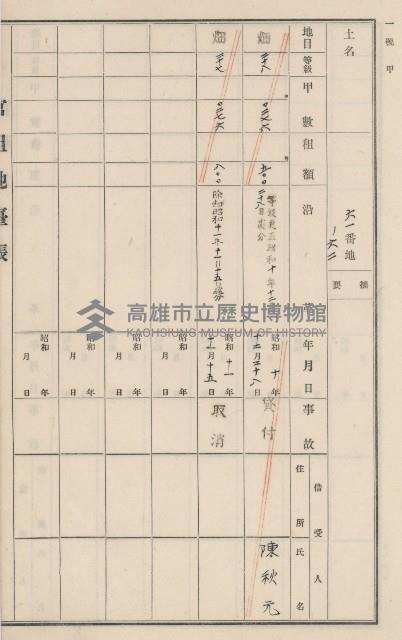 一號甲
土名
六一番地
ノ六二
摘要
地目
等級
甲數
租額
沿革
年月日
事故
借受人
住所
氏名
畑
二八
五〇〇
等級更正昭和十年十二月
二十八日處分
昭和十年
十二月二十八日
貸付
陳秋元
畑
二七
八〇〇
除却昭和十一年十一月十五日
昭和十一年
十一月十五日
取消
昭和 年
月 日
昭和 年
月 日
昭和 年
月 日
昭和 年
月 日
官租地臺帳
高雄市立歷史博物館
KAOHSIUNG MUSEUM OF HISTORY